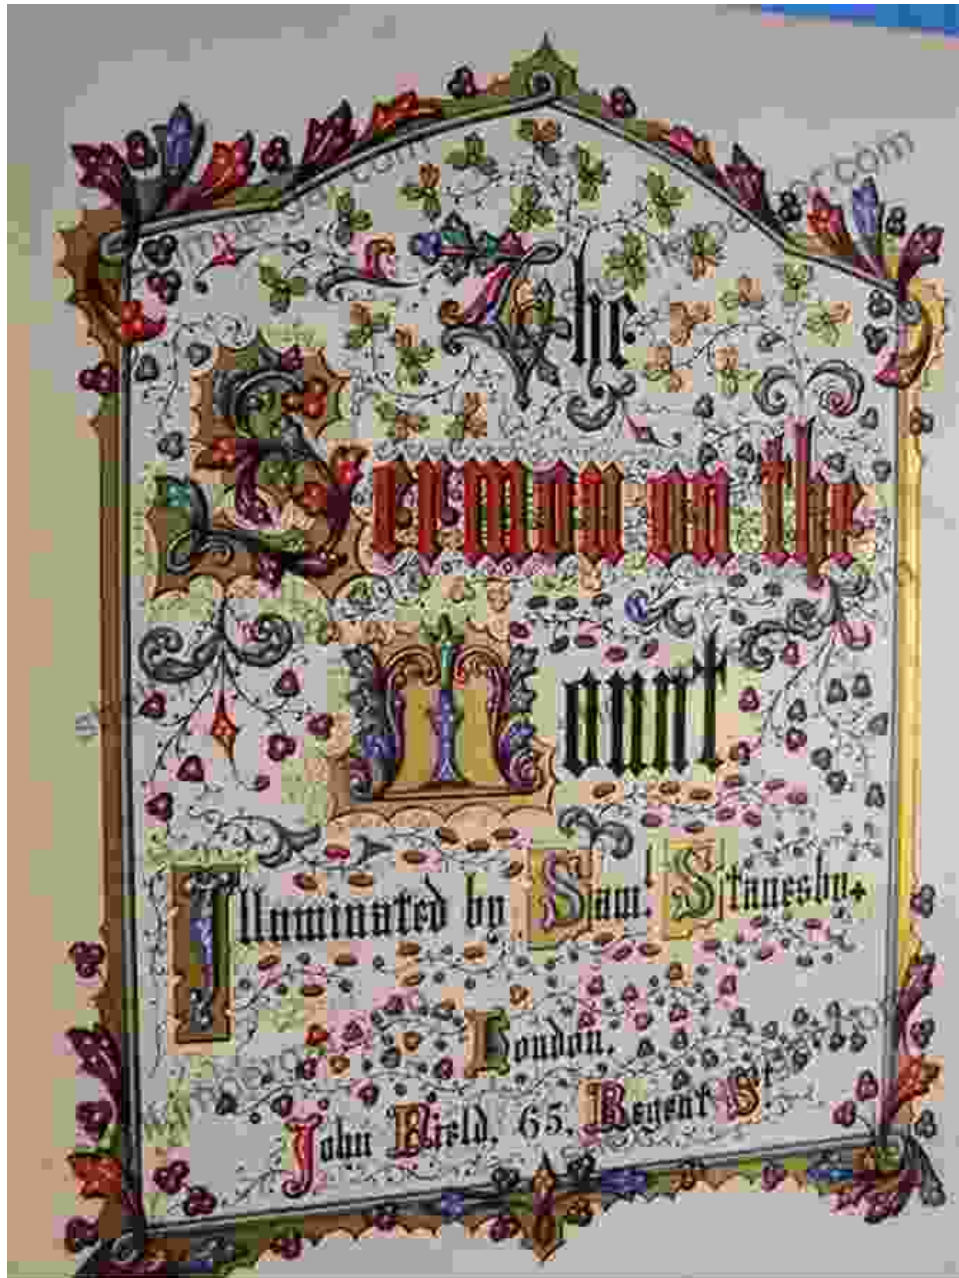 The
Sermon on the
Mount
Illuminated by Sam.l Stanesby.
London.
John Field. 65. Regent St.